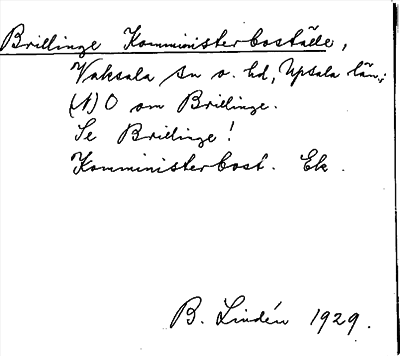 Brillinge Komministerboställe,
Vaksala sn o. hd, Upsala län;
(N) O om Brillinge.
Se Brillinge!
Komministerbost. Ek.
B. Lindén 1929.